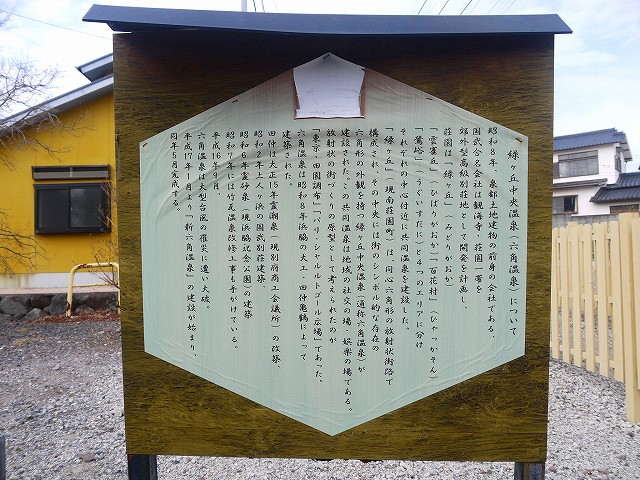 緑ヶ丘中央温泉（六角温泉）について
昭和８年、泉都土地建物の前身の会社である、
国武合名会社は観海寺・荘園一帯を
郊外型高級別荘地として開発を計画し、
荘園は「緑ヶ丘」（みどりがおか）
「雲雀丘」（ひばりがおか）「百花村」（ひゃっかそん）
「鶯塔」（うぐいすだに）と４つのエリアに分け
それぞれの中心付近に共同温泉を建設した。
「緑ヶ丘」（現南荘園町）は、同心六角形の放射状街路で
構成され、その中央には街のシンボル的な存在の
六角形の外観を持つ緑ヶ丘中央温泉（通称六角温泉）が
建設された。この共同温泉は地域の社交の場・娯楽の場である。
放射状の街づくりの原型として考えられたのが
「東京、田園調布」「パリ・シャルルドゴール広場」であった。
六角温泉は昭和８年浜脇の大工・田仲亀鶴によって
建築された。
田仲は大正15年霊潮泉（現別府商工会議所）の改築、
昭和２年上人ヶ浜の国武別荘建築、
昭和６年霊砂泉（現浜脇記念公園）の建築
昭和７年には竹瓦温泉改修工事も手がけている。
平成16年９月、
六角温泉は大型台風の罹災に遭い大破。
平成17年１月より「新六角温泉」の建設が始まり、
同年５月完成する。